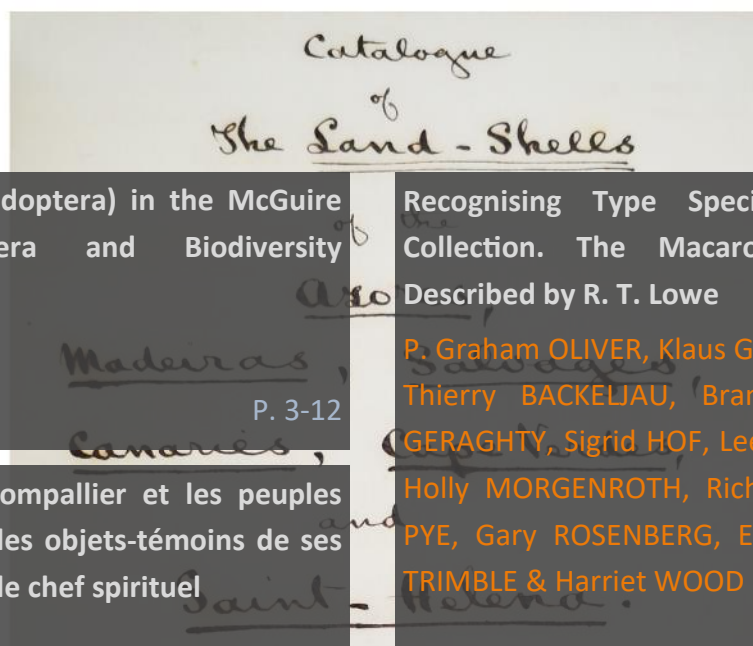 Catalogue
of
The Land - Shells
of the
Azores,
Madeiras, Salvages,
Canaries, Cape Verdes,
and
Saint - Helena.
doptera) in the McGuire
era and Biodiversity
P. 3-12
ompallier et les peuples
les objets-témoins de ses
le chef spirituel
Recognising Type Speci
Collection. The Macaro
Described by R. T. Lowe
P. Graham OLIVER, Klaus G
Thierry BACKELJAU, Bran
GERAGHTY, Sigrid HOF, Lee
Holly MORGENROTH, Rich
PYE, Gary ROSENBERG, E
TRIMBLE & Harriet WOOD